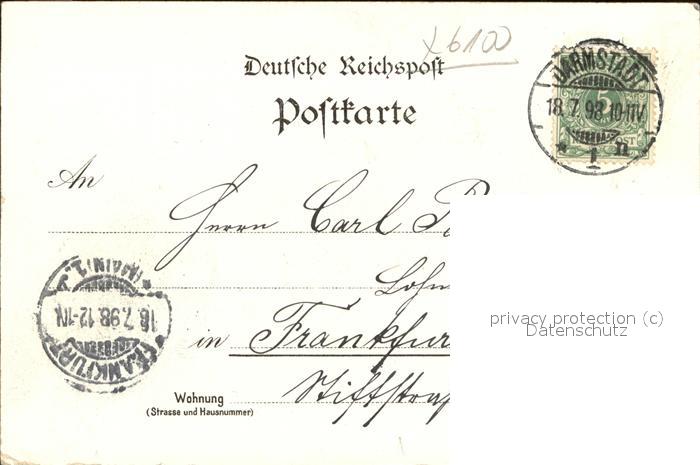 x6100
Deutsche Reichspost
Postkarte
DARMSTADT
18.7.98.10-11V.
* 1 n
5
An
Herrn Carl
privacy protection (c)
Datenschutz
FRANKFURT
(MAIN) 1.
18.7.98.12-1N
in Frankfur
Stiftstra
Wohnung
(Strasse und Hausnummer)